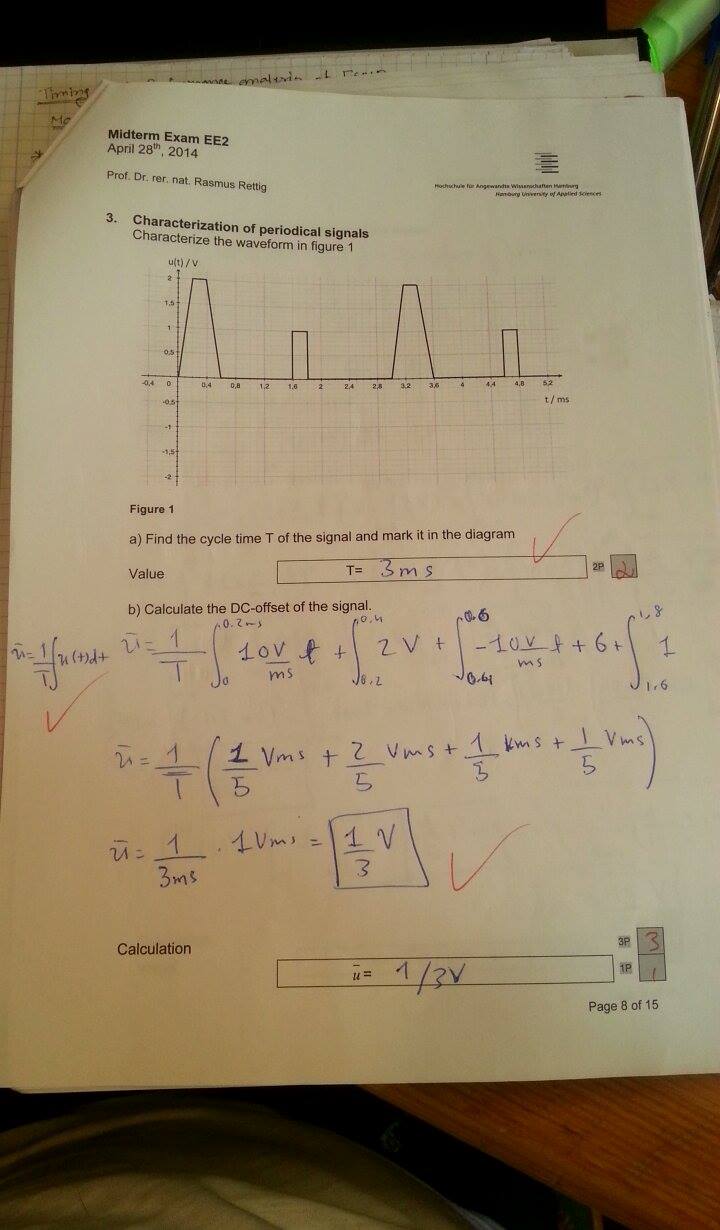 Timing
analysis of
Midterm Exam EE2
April 28th, 2014
Prof. Dr. rer. nat. Rasmus Rettig
Hochschule für Angewandte Wissenschaften Hamburg
Hamburg University of Applied Sciences
3. Characterization of periodical signals
Characterize the waveform in figure 1
u(t) / V
2
1,5
1
0,5
-0,4 0 0,4 0,8 1,2 1,6 2 2,4 2,8 3,2 3,6 4 4,4 4,8 5,2
t / ms
-0,5
-1
-1,5
-2
Figure 1
a) Find the cycle time T of the signal and mark it in the diagram
Value T= 3ms 2P 2
b) Calculate the DC-offset of the signal.
ū = 1/T ∫ u(t)dt
ū = 1/T ∫₀^0.2ms 10 V/ms t + ∫_0.2^0.4 2V + ∫_0.4^0.6 -10 V/ms t + 6 + ∫_1.6^1.8 1
ū = 1/T (1/5 Vms + 2/5 Vms + 1/5 Vms + 1/5 Vms)
ū = 1/3ms · 1Vms = 1/3 V
Calculation 3P 3
ū = 1/3V 1P 1
Page 8 of 15